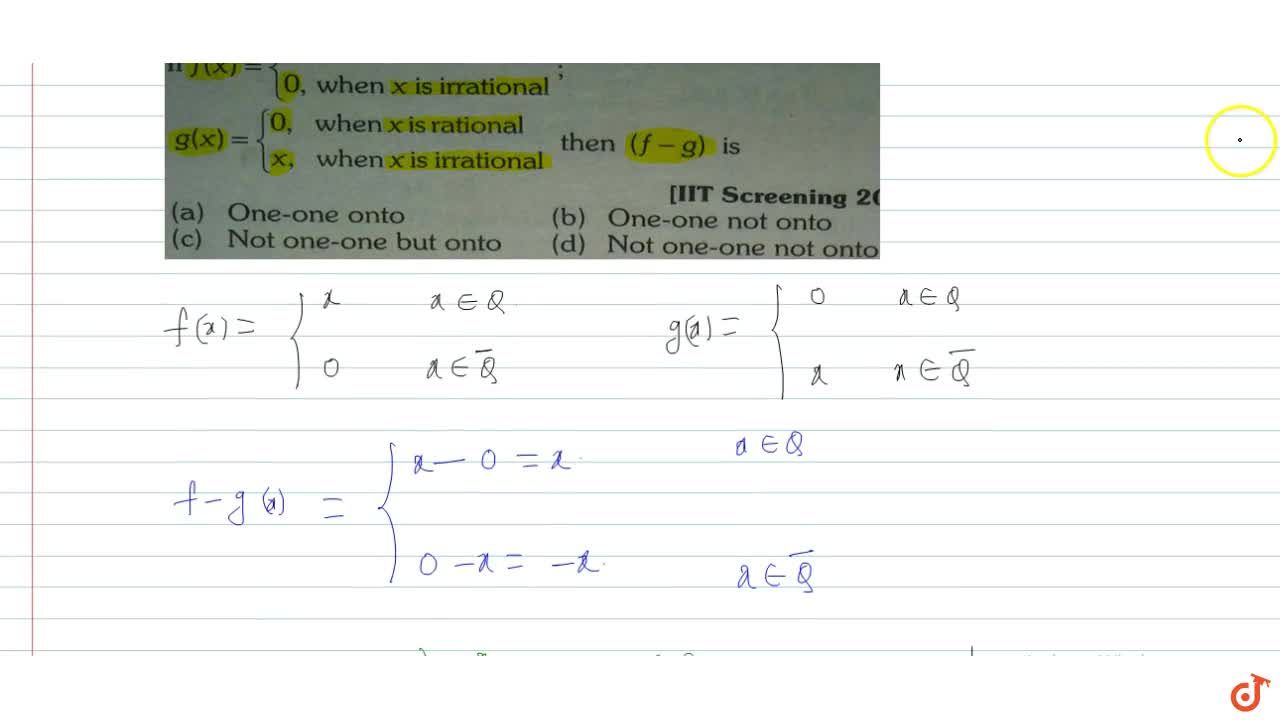 f(x) = { 0, when x is irrational ;
g(x) = { 0, when x is rational
x, when x is irrational then (f – g) is
[IIT Screening 20
(a) One-one onto (b) One-one not onto
(c) Not one-one but onto (d) Not one-one not onto
f(x) = { x x ∈ Q
0 x ∈ Q̅
g(x) = { 0 x ∈ Q
x x ∈ Q̅
f – g (x) = { x – 0 = x x ∈ Q
0 – x = – x. x ∈ Q̅